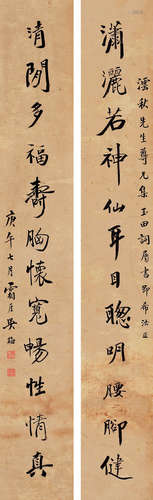 濡秋先生尊兄集玉田詞屬書即希法正
瀟灑若神仙耳目聰明腰腳健
清閒多福壽胸懷寬暢性情真
庚午七月霜厓吳梅